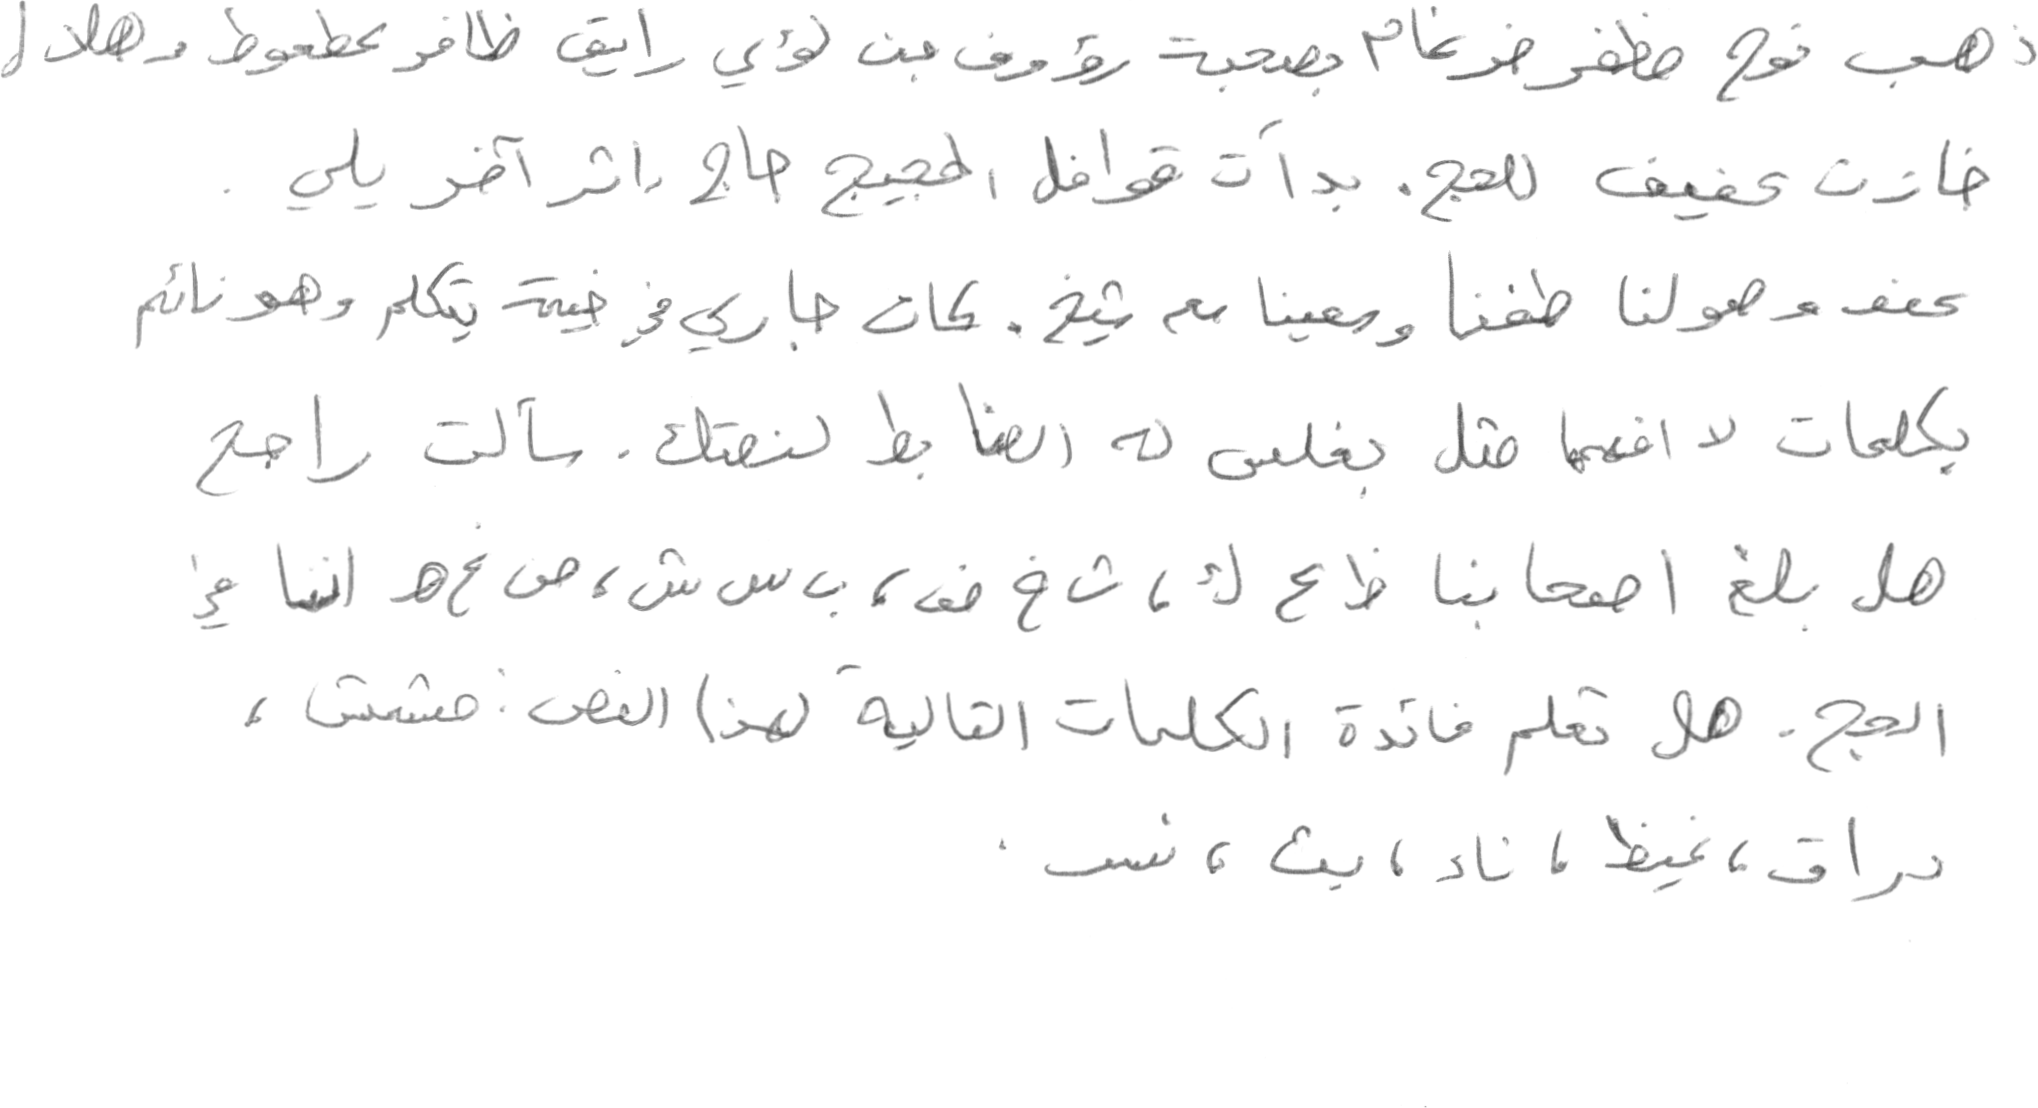 ذهب نوح مظفر ضرغام بصحبة رؤوف بن لؤي رايق ظافر عطعوط و هلال
خازن عفيف للحج. بدأت قوافل الحجيج حاج إثر آخر يلي.
عند وصولنا طفنا وسعينا مع شيخ. كان جاري في خيمة يتكلم وهو نائم
بكلمات لا افهمها مثل بغلس له الضابط لنصتك. سألت راجح
هل بلغ اصحابنا ظ ع ك، ث خ ف، ب س ش، ص غ ه اننا في
الحج. هل تعلم فائدة الكلمات التالية لهذا النص: مشمش،
دراق، غيظ، ناد، بث، نسب.